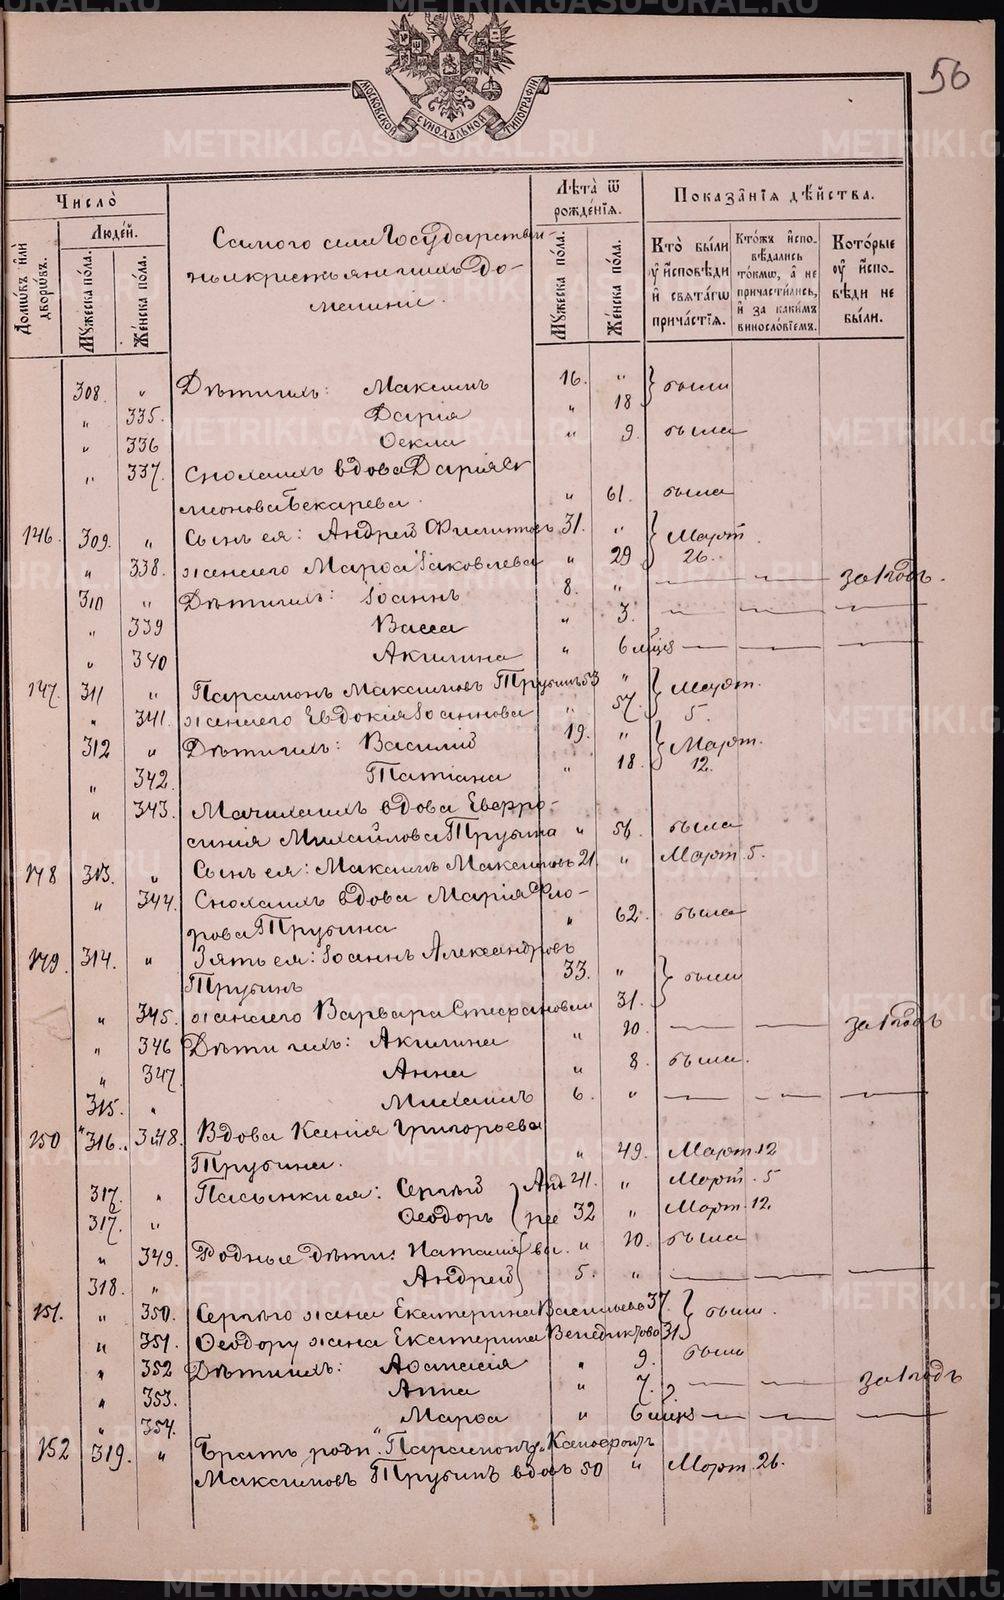 56
МОСКОВСКОЙ СѴНОДАЛЬНОЙ ТИПОГРАФІИ
METRIKI.GASO-URAL.RU
Число̀
Люде́й.
Домѡ́въ и҆лѝ дворѡ́въ.
Мꙋ́жеска по́ла.
Же́нска по́ла.
Самого села Государствен-
ныхъ крестьянъ ихъ до-
машніе.
Лѣ́та ѿ рожде́нїѧ.
Мꙋ́жеска по́ла.
Же́нска по́ла.
Показа̑нїѧ дѣ́йства.
Кто̀ бы́ли ᲂу҆ и҆сповѣ́ди и҆ свѧта́гѡ прича́стїѧ.
Кто́жъ и҆спо-вѣ́дались то́кмѡ, а҆ не причасти́лись, и҆ за каки́мъ винослѡ́вїемъ.
Кото́рые ᲂу҆ и҆спо-вѣ́ди не бы́ли.
308. " Дѣти ихъ: Максимъ 16. " были
" 335. Дарія " 18
" 336 Ѳекла " 9. была
" 337. Сноха ихъ вдова Дарія Си-
меонова Бекарева. " 61. была
146. 309. " Сынъ ея: Андрей Филиповъ 31. " Март.
" 338. жена его Марѳа Іаковлева " 29 26.
310 " Дѣти ихъ: Іоаннъ 8. " — — за 1 годъ.
" 339 Васса " 3. — — —
" 340 Акилина " 6 мцъ — — —
147. 311 " Парамонъ Максимовъ Трубинъ 53 " Март.
" 341. жена его Евдокія Іоаннова " 57. 5.
312 " Дѣти ихъ: Василій 19. " Март.
" 342. Татіана " 18. 12.
" 343. Мачиха ихъ вдова Евфро-
синія Михайлова Трубина " 56. была
148 313. " Сынъ ея: Максимъ Максимовъ 21. " Март. 5.
" 344. Сноха ихъ вдова Марія Фло-
рова Трубина " 62. была
149. 314. " Зять ея: Іоаннъ Александровъ
Трубинъ 33. " были
" 345. жена его Варвара Стефановна 31.
" 346 Дѣти ихъ: Акилина " 10. — — за 1 годъ
" 347. Анна " 8. была.
315. " Михаилъ 6. " — — —
150 316. 348. Вдова Ксенія Григорьева
Трубина. " 49. Март. 12
317. " Пасынки ея: Сергѣй 41. " Март. 5
317. " Ѳеодоръ 32 " Март. 12.
" 349. Родные дѣти: Наталія " 10. была
318. " Андрей 5. " — — —
151. " 350. Сергѣю жена Екатерина Васильева 37. были.
" 351. Ѳеодору жена Екатерина Венедиктова 31
" 352 Дѣти ихъ: Аѳанасія " 9. была
" 353. Анна " 7. — — за 1 годъ
" 354. Марѳа " 6 мцъ — — —
152 319. " Братъ родн. Парамона, Ксенофонтъ
Максимовъ Трубинъ вдовъ 50 " Март. 26.